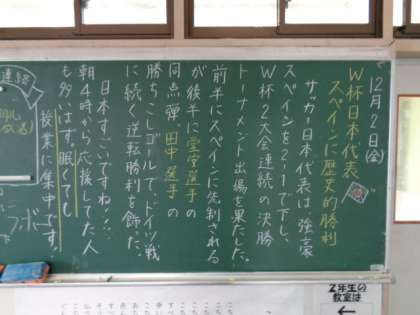 12月2日(金)
W杯日本代表
スペインに歴史的勝利
サッカー日本代表は強豪
スペインを2-1で下し、
W杯2大会連続の決勝
トーナメント出場を果たした。
前半にスペインに先制される
が後半に堂安選手の
同点弾、田中選手の
勝ちこしゴールで、ドイツ戦
に続く逆転勝利を飾った。
日本すごいですね!
朝4時から応援してた人
も多いはず。眠くても
授業に集中です。
連絡
2年生の
教室は
←